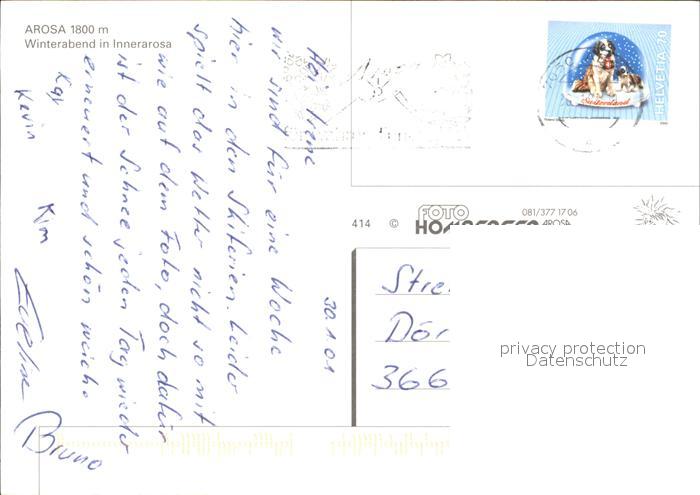 AROSA 1800 m
Winterabend in Innerarosa
Hoi Irene
wir sind für eine Woche
hier in den Skiferien. Leider
spielt das Wetter nicht so mit
wie auf dem Foto, doch dafür
ist der Schnee jeden Tag wieder
erneuert und schön weich.
Kay
Kevin
Kim
Eveline
Bruno
30.1.01
Switzerland
HELVETIA 70
414 ©
FOTO
HOMBERGER
081/377 17 06
AROSA
Stre
Dör
366
privacy protection
Datenschutz